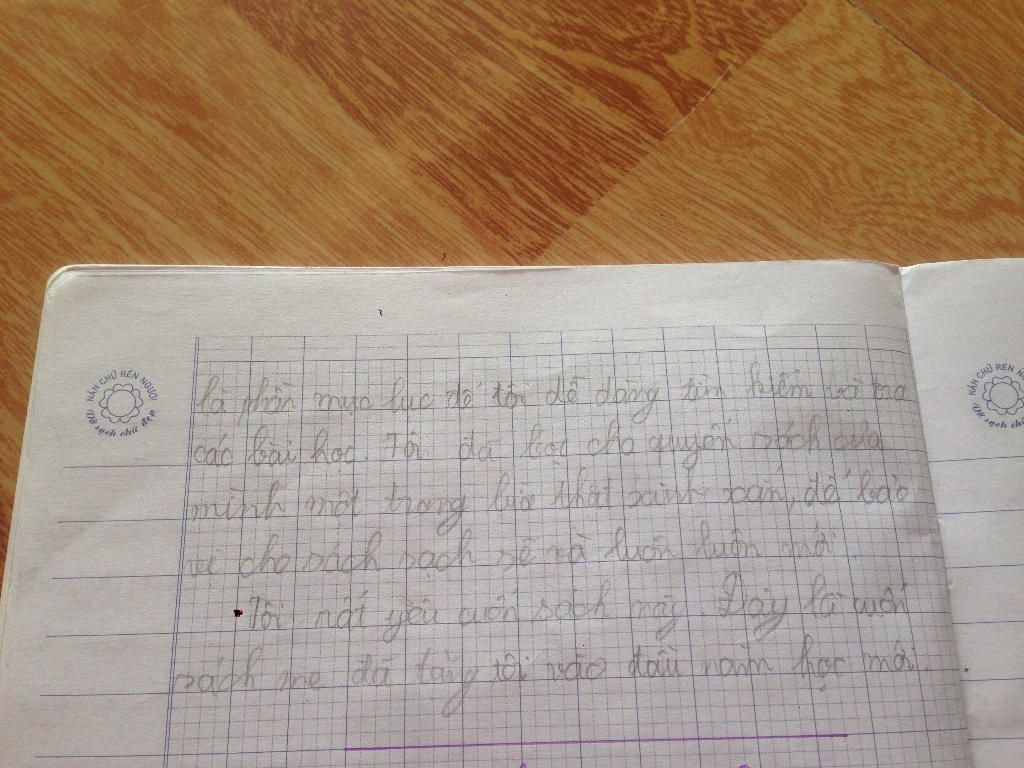 NẮN CHỮ RÈN NGƯỜI
Vở sạch chữ đẹp
là phần mục lục để tôi dễ dàng tìm kiếm và tra
các bài học. Tôi đã bọc cho quyển sách của
mình một trang bìa thật xinh xắn, để bảo
vệ cho sách sạch sẽ và luôn luôn mới.
Tôi rất yêu cuốn sách này. Đây là cuốn
sách mẹ đã tặng tôi vào đầu năm học mới.
NẮN CHỮ RÈN
Vở sạch chữ